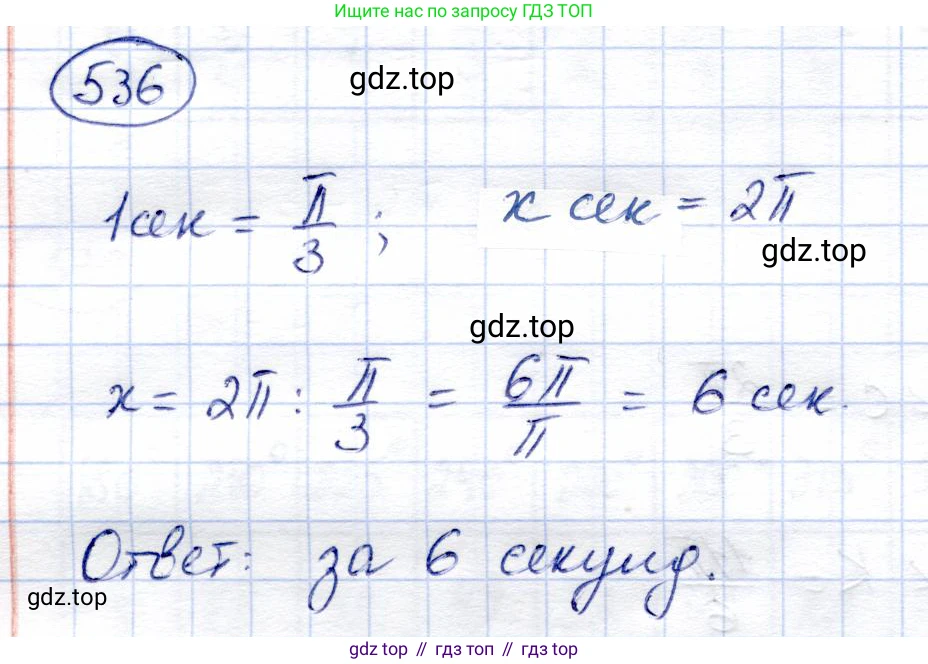 Ищите нас по запросу ГДЗ ТОП
536
gdz.top
1сек = π/3 ; x сек = 2π
gdz.top
gdz.top
x = 2π : π/3 = 6π/π = 6 сек.
Ответ: за 6 секунд.
gdz.top
gdz top // гдз топ // gdz top